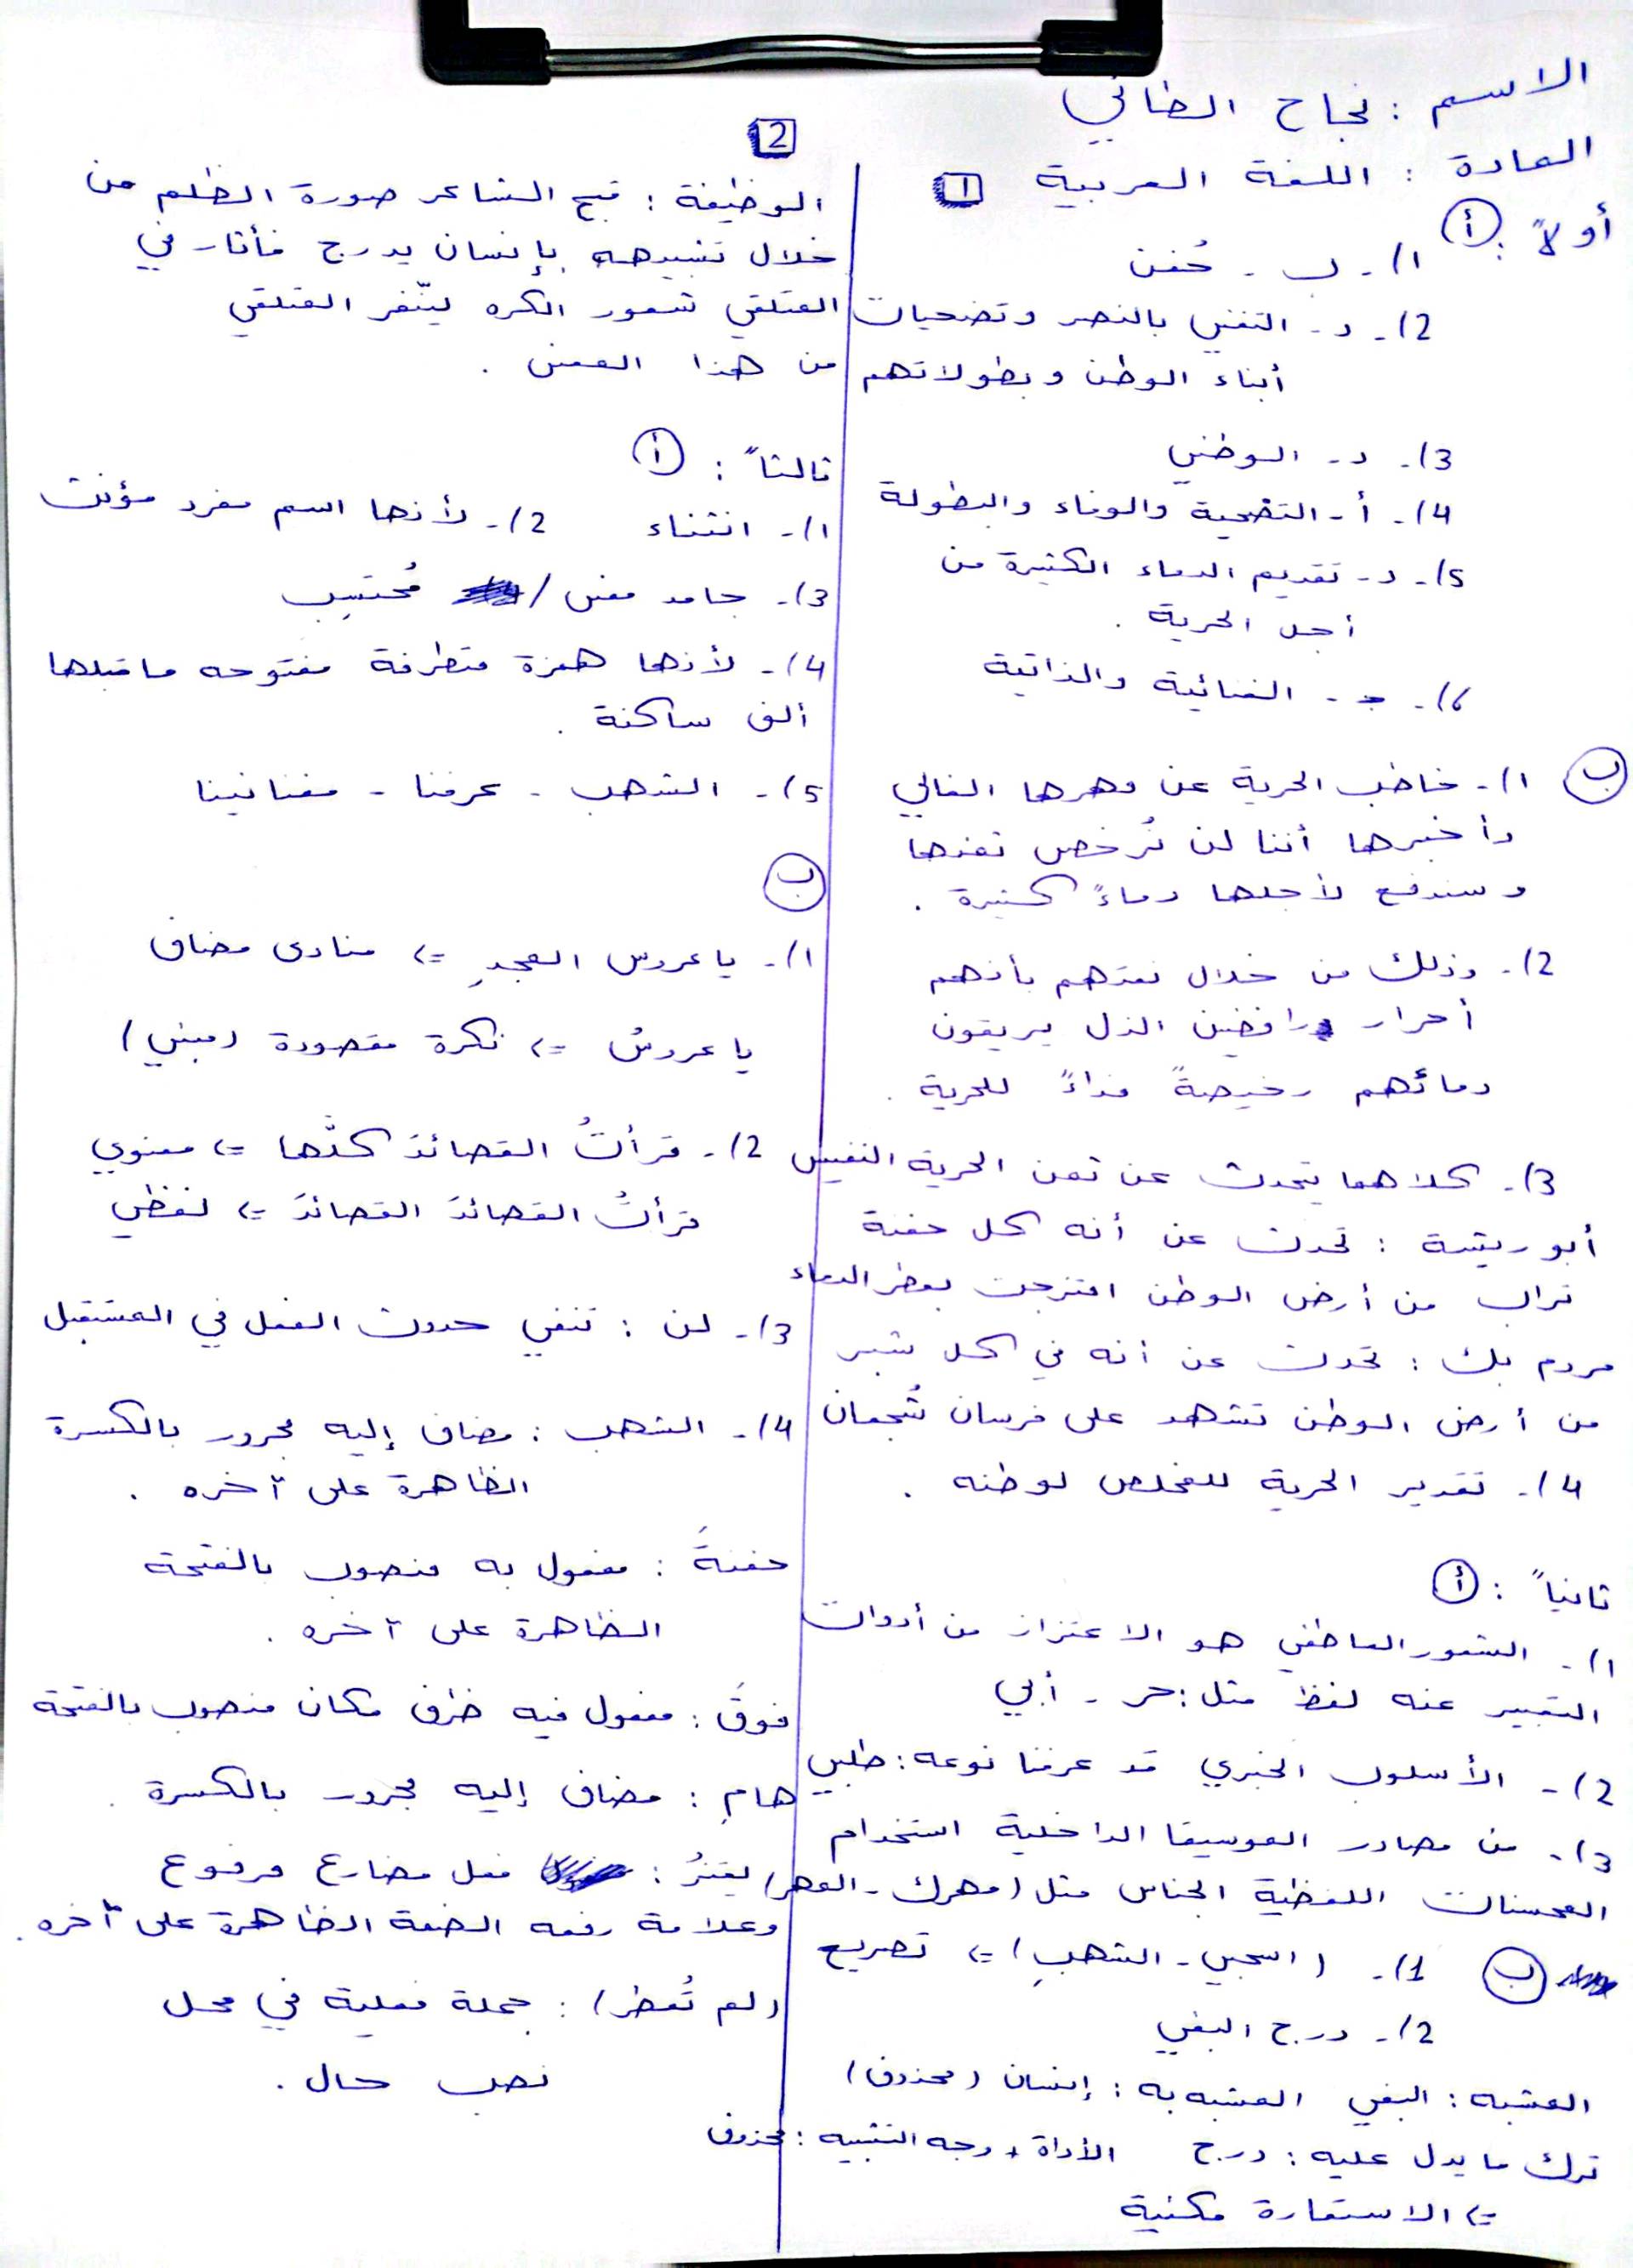 الاسم : نجاح الطائي
المادة : اللغة العربية 1
أولاً : أ
1)- ب - حُفن
2)- د - التغني بالنصر وتضحيات
أبناء الوطن وبطولاتهم
3)- د - الوطني
4)- أ - التضحية والوفاء والبطولة
5)- د - تقديم الدماء الكثيرة من
أجل الحرية .
6)- ج - الغنائية والذاتية
ب 1)- خاطب الحرية عن مهرها الغالي
وأخبرها أننا لن نُرخص ثمنها
وسندفع لأجلها دماءً كثيرة .
2)- وذلك من خلال نعتهم بأنهم
أحرار رافضين الذل يريقون
دمائهم رخيصةً فداءً للحرية .
3)- كلاهما يتحدث عن ثمن الحرية النفيس
أبو ريشة : تحدث عن أنه كل حفنة
تراب من أرض الوطن امتزجت بعطر الدماء
مردم بك : تحدث عن أنه في كل شبر
من أرض الوطن تشهد على فرسان شُجعان
4)- تقدير الحرية للمخلص لوطنه .
ثانياً : أ
1)- الشعور العاطفي هو الاعتزاز من أدوات
التعبير عنه لفظ مثل : حر - أبي
2)- الأسلوب الخبري قد عرفنا نوعه : طلبي
3)- من مصادر الموسيقا الداخلية استخدام
المحسنات اللفظية الجناس مثل (مهرك - المهر)
ب 1)- (اسحبي - الشهبِ) => تصريع
2)- درج البغي
المشبه : البغي المشبه به : إنسان (محذوف)
ترك ما يدل عليه : درج الأداة + وجه التشبيه : محذوف
=> الاستعارة مكنية
2
الوظيفة : قبح الشاعر صورة الظلم من
خلال تشبيهه بإنسان يدرج فأثار في
المتلقي شعور الكره لينّفر المتلقي
من هذا المعنى .
ثالثاً : أ
1)- انثناء 2)- لأنها اسم مفرد مؤنث
3)- جامد معنى / مُحتسِب
4)- لأنها همزة متطرفة مفتوحه ما قبلها
ألف ساكنة .
5)- الشهب - عرفنا - مغنانينا
ب
1)- يا عروس المجدِ => منادى مضاف
يا عروسُ => نكرة مقصودة (مبني)
2)- قرأتُ القصائدَ كلّها => معنوي
قرأتُ القصائدَ القصائدَ => لفظي
3)- لن : تنفي حدوث الفعل في المستقبل
4)- الشهب : مضاف إليه مجرور بالكسرة
الظاهرة على آخره .
حفنةً : مفعول به منصوب بالفتحة
الظاهرة على آخره .
فوقَ : مفعول فيه ظرف مكان منصوب بالفتحة
هامِ : مضاف إليه مجرور بالكسرة .
: فعل مضارع مرفوع
وعلامة رفعه الضمة الظاهرة على آخره .
(لم تُعطر) : جملة فعلية في محل
نصب حال .